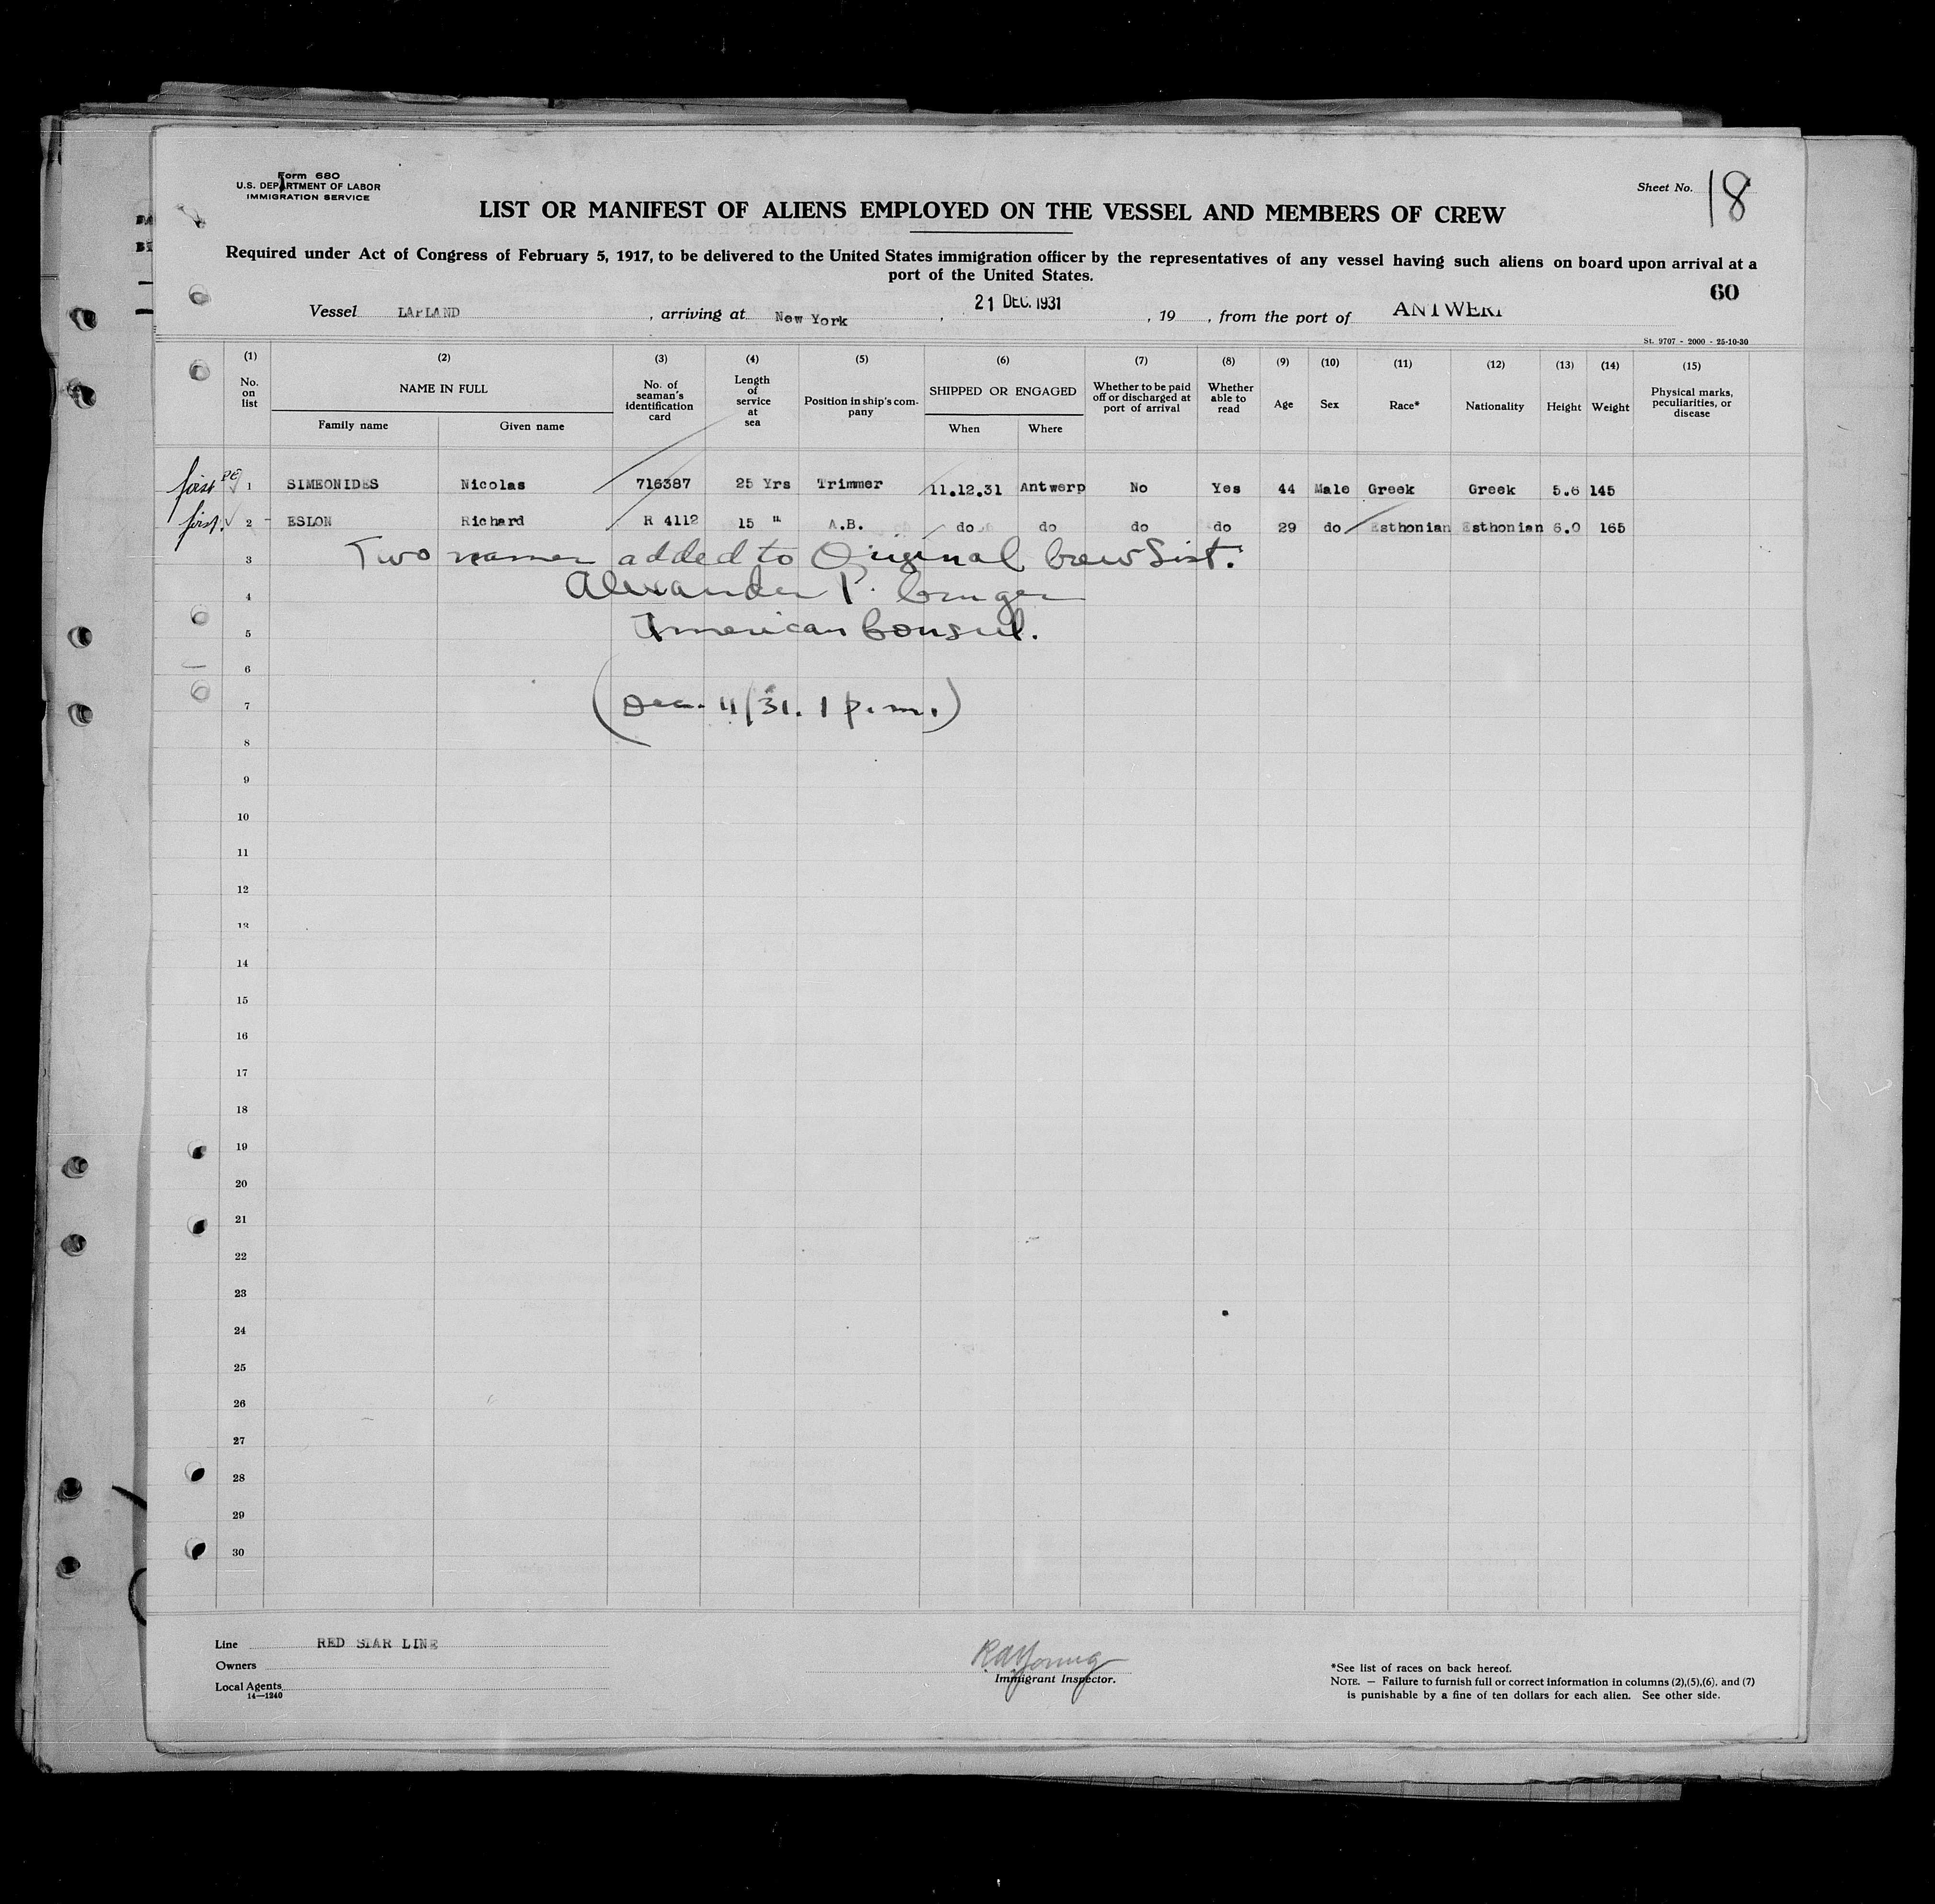 Form 680
U.S. DEPARTMENT OF LABOR
IMMIGRATION SERVICE
Sheet No. 18
LIST OR MANIFEST OF ALIENS EMPLOYED ON THE VESSEL AND MEMBERS OF CREW
Required under Act of Congress of February 5, 1917, to be delivered to the United States immigration officer by the representatives of any vessel having such aliens on board upon arrival at a
port of the United States.
60
Vessel LAPLAND, arriving at New York, 21 DEC. 1931, 19 , from the port of ANTWERP
St. 9707 - 2000 - 25-10-30
(1) (2) (3) (4) (5) (6) (7) (8) (9) (10) (11) (12) (13) (14) (15)
No. on list
NAME IN FULL
Family name
Given name
No. of seaman's identification card
Length of service at sea
Position in ship's company
SHIPPED OR ENGAGED
When
Where
Whether to be paid off or discharged at port of arrival
Whether able to read
Age
Sex
Race*
Nationality
Height
Weight
Physical marks, peculiarities, or disease
first 1 SIMEONIDES Nicolas 716387 25 Yrs Trimmer 11.12.31 Antwerp No Yes 44 Male Greek Greek 5.6 145
first. 2 - ESLON Richard R 4112 15 " A.B. do do do do 29 do Esthonian Esthonian 6.0 165
3 Two names added to Original Crew List.
4 Alexander P. Cruger
5 American Consul.
6
7 (Dec. 11/31. 1 p.m.)
8
9
10
11
12
13
14
15
16
17
18
19
20
21
22
23
24
25
26
27
28
29
30
Line RED STAR LINE
Owners
Local Agents
14—1240
Immigrant Inspector.
*See list of races on back hereof.
NOTE. — Failure to furnish full or correct information in columns (2),(5),(6), and (7)
is punishable by a fine of ten dollars for each alien. See other side.